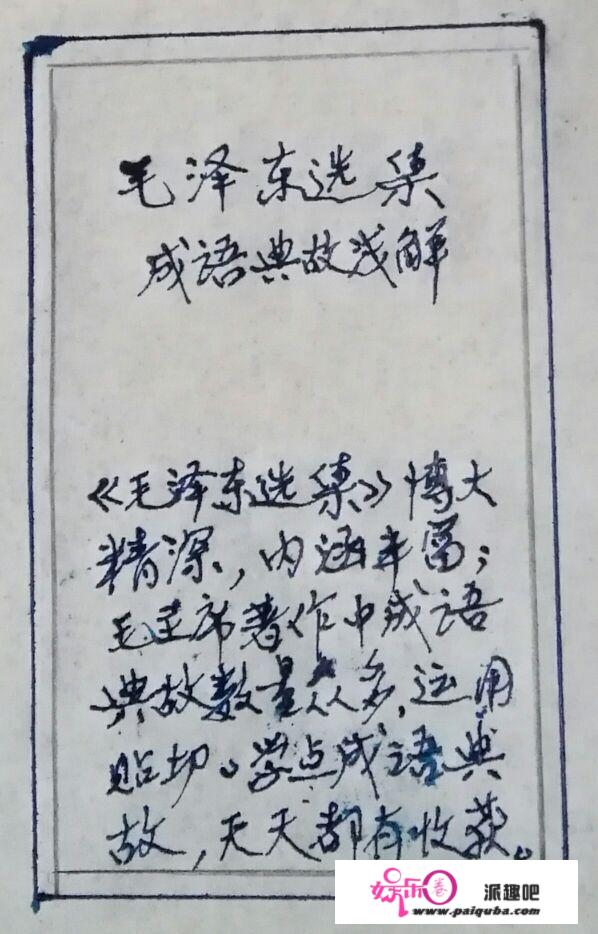 毛泽东选集
成语典故浅解
《毛泽东选集》博大
精深，内涵丰富；
毛主席著作中成语
典故数量众多，运用
贴切。学点成语典
故，天天都有收获。
娱乐圈 派趣吧
www.paiquba.com